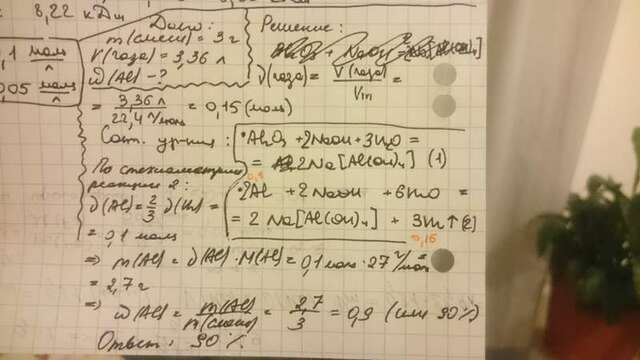 8,22 кДж
Дано:
m(смеси) = 3 г
V(газа) = 3,36 л
ω(Al) - ?
0,1 моль/л
0,05 моль/л
Решение:
ν(газа) = V(газа)/Vm =
= 3,36 л / 22,4 л/моль = 0,15 (моль)
Сост. ур-ния:
• Al2O3 + 2NaOH + 3H2O =
= 2Na[Al(OH)4] (1)
По стехиометрии
реакции 2:
ν(Al) = 2/3 ν(H2) =
= 0,1 моль
0,1
• 2Al + 2NaOH + 6H2O =
= 2Na[Al(OH)4] + 3H2↑ (2)
0,15
⇒ m(Al) = ν(Al) · M(Al) = 0,1 моль · 27 г/моль =
= 2,7 г
⇒ ω(Al) = m(Al)/m(смеси) = 2,7/3 = 0,9 (или 90%)
Ответ: 90%